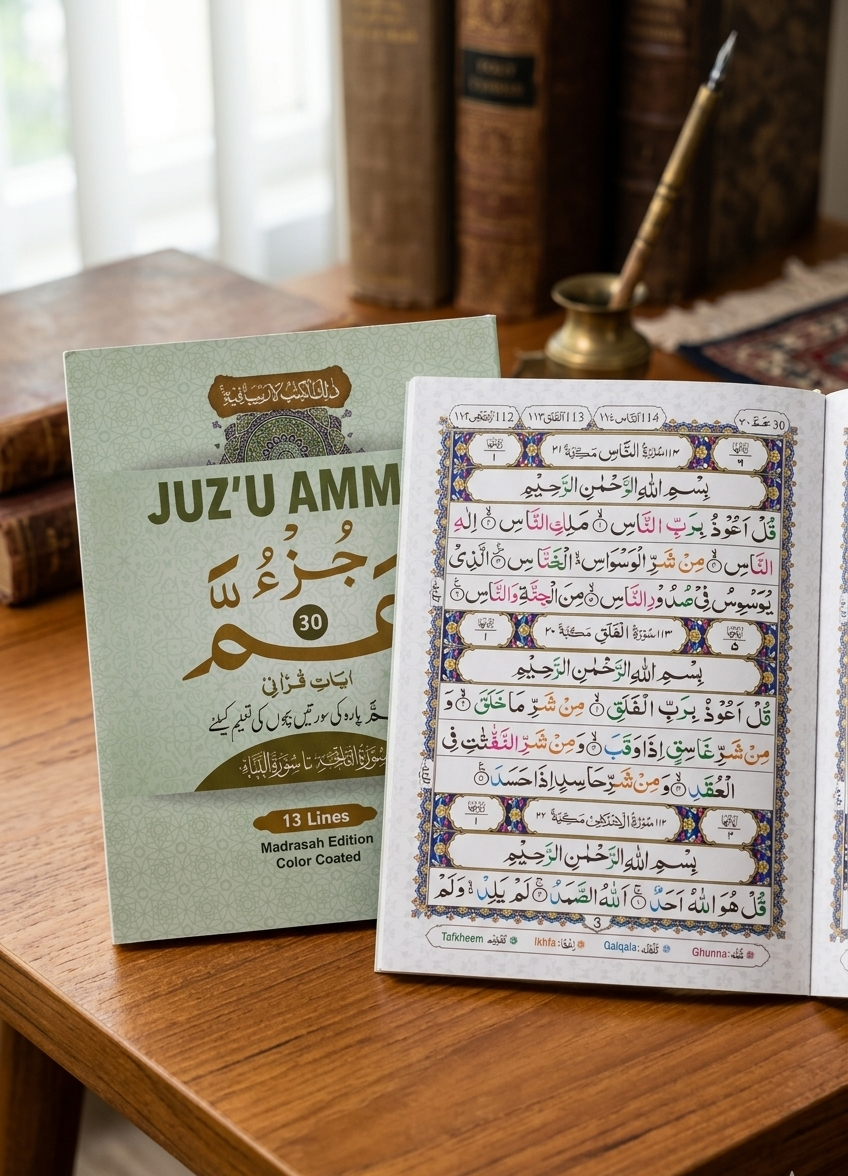 ذٰلِكَ الْكِتٰبُ لَا رَيْبَ فِيْهِ
JUZ’U AMM
جُزْءُ
عَمَّ
30
اٰیاتِ قُرْآنی
عمَّ پارہ کی سورتیں بچّوں کی تعلیم کیلئے
سُوْرَةُ الْفَاتِحَة تا سُوْرَةُ النَّبَاِ
13 Lines
Madrasah Edition
Color Coated
30 عم ٣٠
114 النَّاس ١١٤
113 الفلق ١١٣
112
سُوْرَةُ النَّاسِ مَكِّيَّةٌ ٢١
بِسْمِ اللهِ الرَّحْمٰنِ الرَّحِيْمِ
قُلْ اَعُوْذُ بِرَبِّ النَّاسِ ۝١ مَلِكِ النَّاسِ ۝٢ اِلٰهِ
النَّاسِ ۝٣ مِنْ شَرِّ الْوَسْوَاسِ الْخَنَّاسِ ۝٤ الَّذِىْ
يُوَسْوِسُ فِىْ صُدُوْرِ النَّاسِ ۝٥ مِنَ الْجِنَّةِ وَالنَّاسِ ۝٦
١١٣ سُوْرَةُ الْفَلَقِ مَكِّيَّةٌ ٢٠
بِسْمِ اللهِ الرَّحْمٰنِ الرَّحِيْمِ
قُلْ اَعُوْذُ بِرَبِّ الْفَلَقِ ۝١ مِنْ شَرِّ مَا خَلَقَ ۝٢ وَ
مِنْ شَرِّ غَاسِقٍ اِذَا وَقَبَ ۝٣ وَمِنْ شَرِّ النَّفّٰثٰتِ فِى
الْعُقَدِ ۝٤ وَمِنْ شَرِّ حَاسِدٍ اِذَا حَسَدَ ۝٥
١١٢ سُوْرَةُ مَكِّيَّةٌ ٢٢
بِسْمِ اللهِ الرَّحْمٰنِ الرَّحِيْمِ
قُلْ هُوَ اللهُ اَحَدٌ ۝١ اَللهُ الصَّمَدُ ۝٢ لَمْ يَلِدْ وَلَمْ
3
Tafkheem
Ikhfa:
Qalqala: قلقله
Ghunna: غنّه